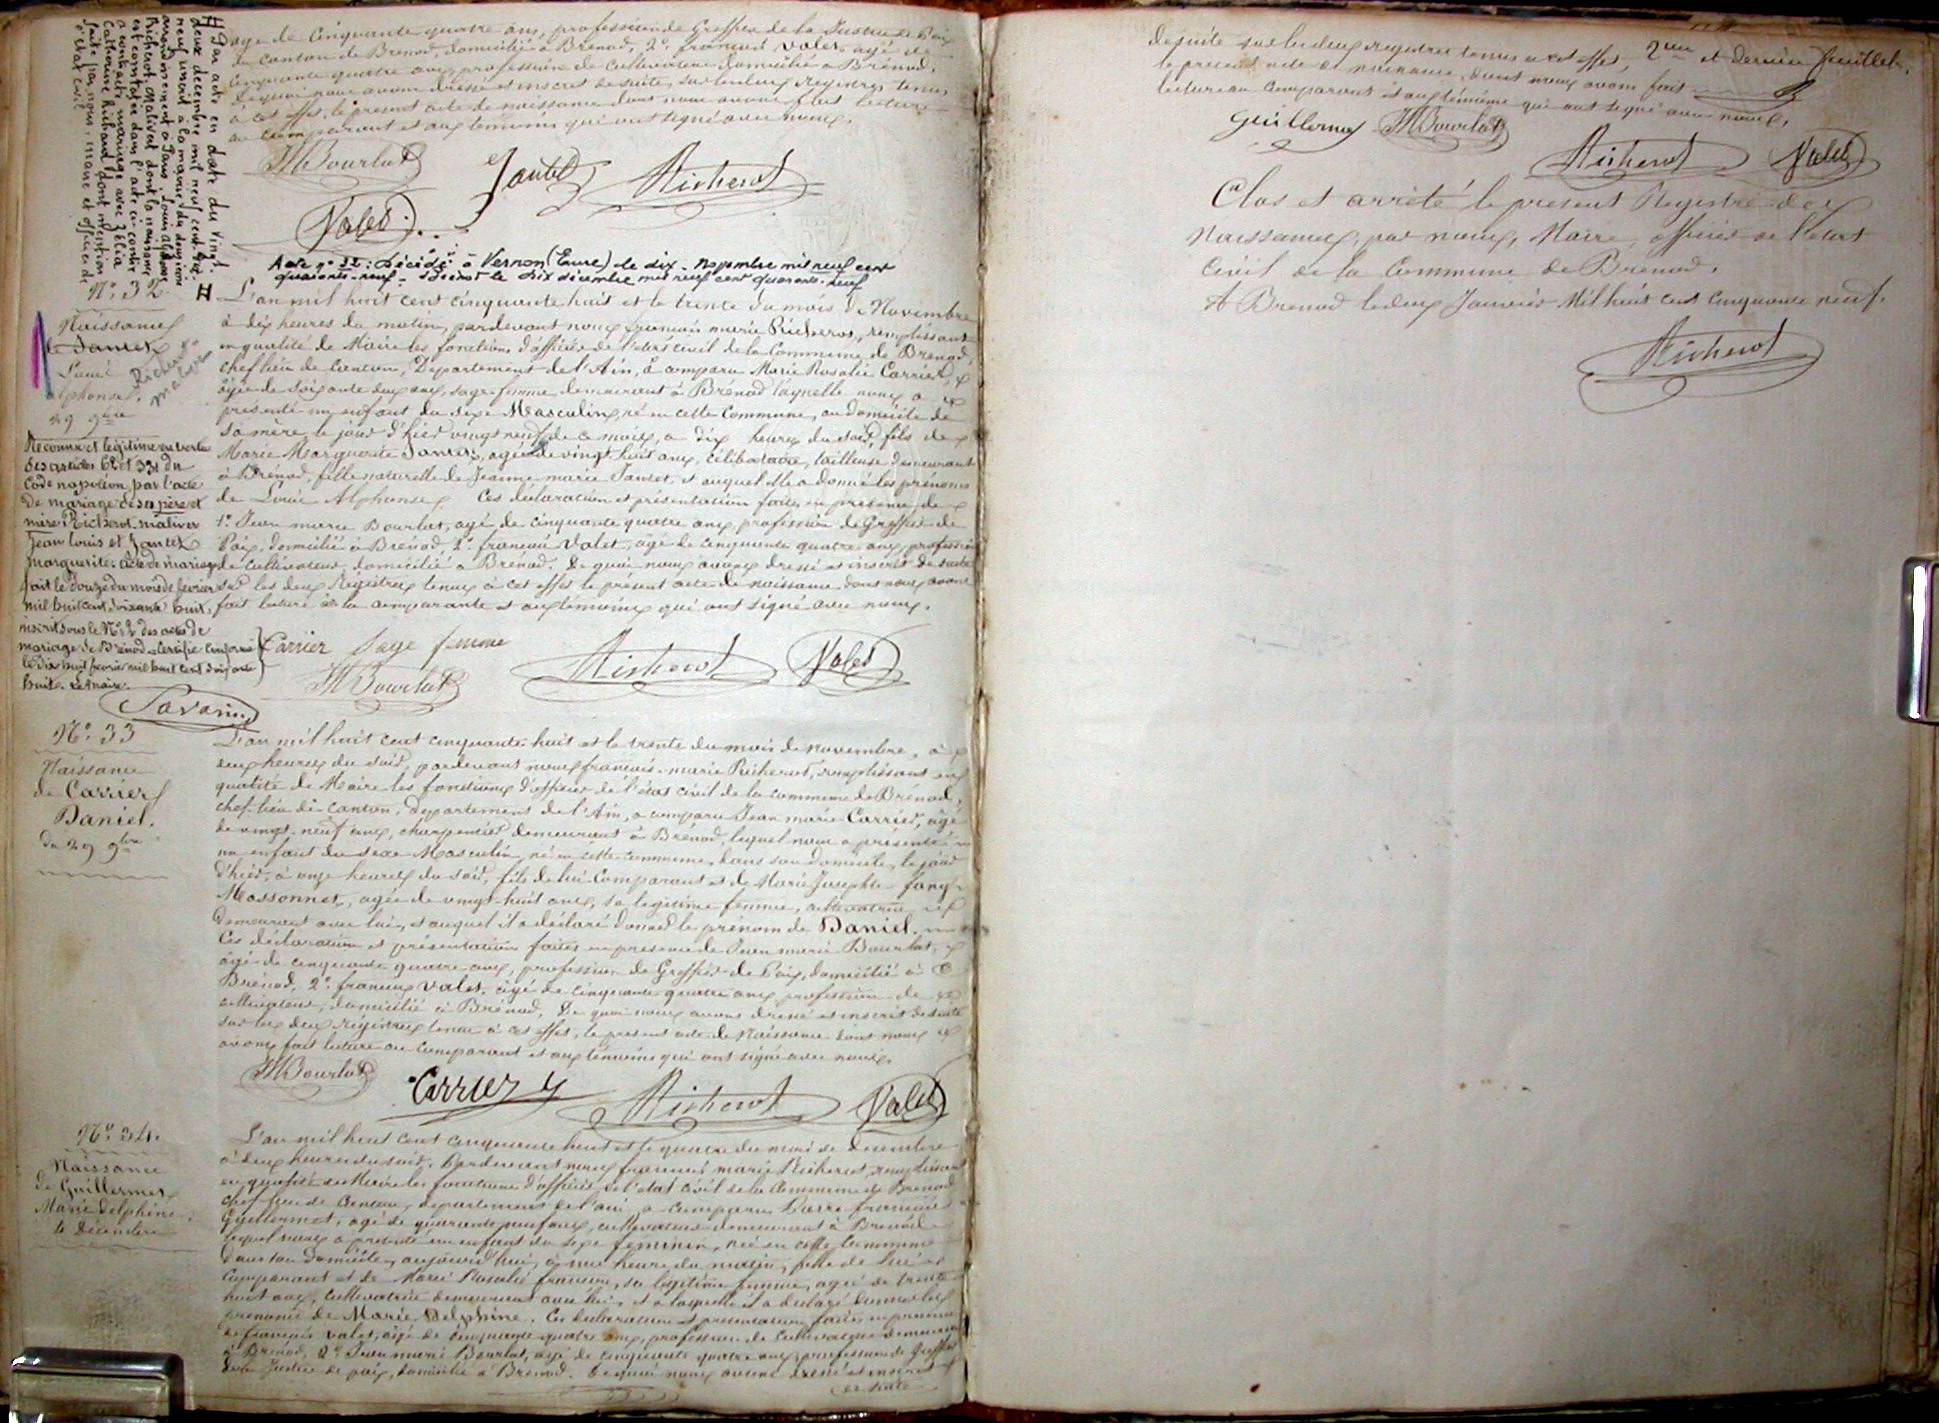 âgé de cinquante quatre ans, profession de Greffier de la Justice de Paix
du canton de Brénod, domicilié à Brénod, 2° françois Valet, âgé de
cinquante quatre ans, profession de cultivateur domicilié à Brénod.
De quoi nous avons dressé et inscrit de suite, sur les deux registres tenus
à cet effet, le présent acte de naissance dont nous avons fait lecture
au comparant et aux témoins qui ont signé avec nous.
JM Bourlat Jantet Richerot
Valet
Acte n° 32 : Décédé à Vernon (Eure) le dix novembre mil neuf cent
quarante-neuf. le dix décembre mil neuf cent quarante-neuf
H Par acte en date du vingt
deux décembre mil neuf cent
neuf inscrit à la mairie du douzième
arrondissement à Paris, Louis Alphonse
Richerot Mativet dont la naissance
est constatée dans l'acte ci-contre
a contracté mariage avec Zélia
Catherine Richard dont mention
faite par nous, maire et officier de
l'état civil
N° 32
Naissance
de Jantet
Louis
Alphonse.
29 9bre
Richerot
Mativet
Reconnu et légitimé en vertu
des articles 62 et 331 du
Code napoléon par l'acte
de mariage de ses père et
mère Richerot-mativet
Jean Louis et Jantet
Marguerite. Acte de mariage
fait le douze du mois de février
mil huit cent soixante huit,
inscrit sous le N° 2 des actes de
mariage de Brénod. Certifié conforme
le dix huit février mil huit cent soixante
huit. Le Maire.
Savarin
L'an mil huit cent cinquante huit et le trente du mois de Novembre
à dix heures du matin, pardevant nous françois marie Richerot, remplissant
en qualité de Maire les fonctions d'officier de l'état civil de la Commune de Brénod,
chef lieu de Canton, Département de l'Ain, a comparu Marie Rosalie Carrier,
âgée de soixante deux ans, sage-femme demeurant à Brénod laquelle nous a
présenté un enfant du sexe Masculin, né en cette Commune, au domicile de
sa mère le jour d'hier vingt neuf de ce mois, à dix heures du soir, fils de
Marie Marguerite Jantet, âgée de vingt huit ans, célibataire, tailleuse demeurant
à Brénod, fille naturelle de Jeanne marie Jantet, et auquel elle a donné les prénoms
de Louis Alphonse. Ces déclaration et présentation faites en présence de
1° Jean marie Bourlat, âgé de cinquante quatre ans, profession de Greffier de
Paix, domicilié à Brénod, 2° françois Valet, âgé de cinquante quatre ans, profession
de cultivateur, domicilié à Brénod. De quoi nous avons dressé et inscrit de suite
sur les deux Régistres tenus à cet effet le présent acte de naissance dont nous avons
fait lecture à la comparante et aux témoins qui ont signé avec nous.
Carrier Sage femme Richerot Valet
JM Bourlat
N° 33
Naissance
de Carrier
Daniel.
du 29 9bre
L'an mil huit cent cinquante-huit et le trente du mois de novembre, à
deux heures du soir, pardevant nous françois-marie Richerot, remplissant en
qualité de Maire les fonctions d'officier de l'état civil de la commune de Brénod,
chef-lieu de canton, Département de l'Ain, a comparu Jean marie Carrier, âgé
de vingt-neuf ans, charpentier demeurant à Brénod, lequel nous a présenté
un enfant du sexe Masculin, né en cette commune, dans son domicile, le jour
d'hier, à onze heures du soir, fils de lui comparant et de Marie Josephte fany
Massonnet, âgée de vingt-huit ans, sa légitime femme, cultivatrice
demeurant avec lui, et auquel il a déclaré donner le prénom de Daniel.
Ces déclaration et présentation faites en présence de Jean marie Bourlat,
âgé de cinquante quatre ans, profession de Greffier de Paix, domicilié à
Brénod, 2° françois Valet, âgé de cinquante quatre ans profession de
cultivateur, domicilié à Brénod. De quoi nous avons dressé et inscrit de suite
sur les deux régistres tenus à cet effet, le présent acte de Naissance dont nous
avons fait lecture au comparant et aux témoins qui ont signé avec nous.
JM Bourlat Carrier Richerot Valet
N° 34.
Naissance
de Guillermet
Marie Delphine.
4 Décembre
L'an mil huit cent cinquante huit et le quatre du mois de décembre
à deux heures du soir. Pardevant nous françois marie Richerot, remplissant
en qualité de Maire les fonctions d'officier de l'état civil de la Commune de Brénod
chef-lieu de Canton, département de l'ain, a comparu Pierre françois
Guillermet, âgé de quarante neuf ans, cultivateur demeurant à Brénod
lequel nous a présenté un enfant du sexe féminin, née en cette Commune
dans son domicile, aujourd'hui, à une heure du matin, fille de lui
comparant et de Marie Rosalie françon, sa légitime femme, âgée de trente
huit ans, cultivatrice demeurant avec lui, et à laquelle il a déclaré donner les
prénoms de Marie Delphine. Ces déclaration et présentation faites en présence
de françois Valet, âgé de cinquante quatre ans, profession de Cultivateur demeurant
à Brénod, 2° Jean marie Bourlat, âgé de cinquante quatre ans, profession de Greffier
de la Justice de paix, domicilié à Brénod. De quoi nous avons dressé et inscrit
de suite
de suite sur les deux registres tenus à cet effet, 2eme et dernier feuillet.
le présent acte de naissance, dont nous avons fait
lecture au Comparant et aux témoins qui ont signé avec nous.
Guillermet JM Bourlat
Richerot Valet
Clos et arrêté le présent Registre des
Naissances, par nous, Maire, officier de l'état
Civil de la Commune de Brénod.
A Brénod le deux Janvier Mil huit cent cinquante neuf.
Richerot